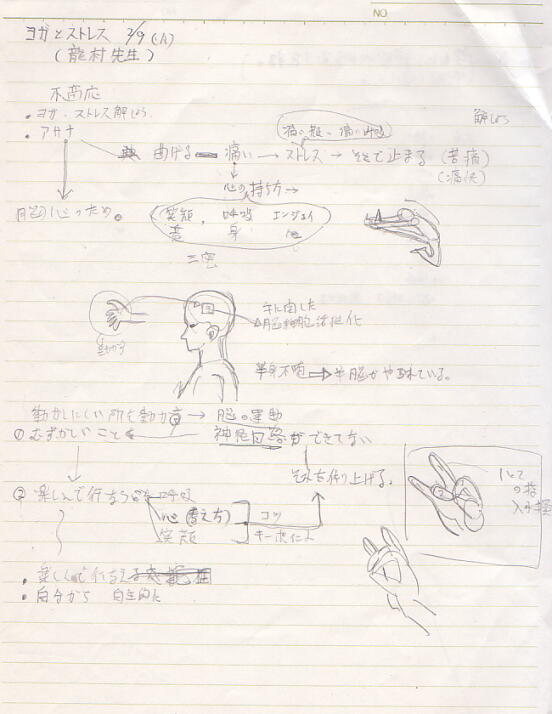 NO.
ヨガとストレス 2/9 (A)
(龍村先生)
不適応
・ヨガ、ストレス解しょう
解しょう
・アサナ
曲げる 痛い → ストレス → そこで止まる (苦痛)
(痛快)
心の持ち方→
脳、心のため。
笑顔、呼吸 エンジョイ
身 心
三密
手に関した
脳細胞活性化
動かす
半身不随 ⇒ 半脳がやられている。
動かしにくい所を動かす → 脳の運動
① むずかしいことを 神経回路ができてない
それを作り上げる。
② 楽しんで行なう 呼吸
心(考え方) コツ
笑顔
の指
・楽しんで行なえる
・自分から 自主的に